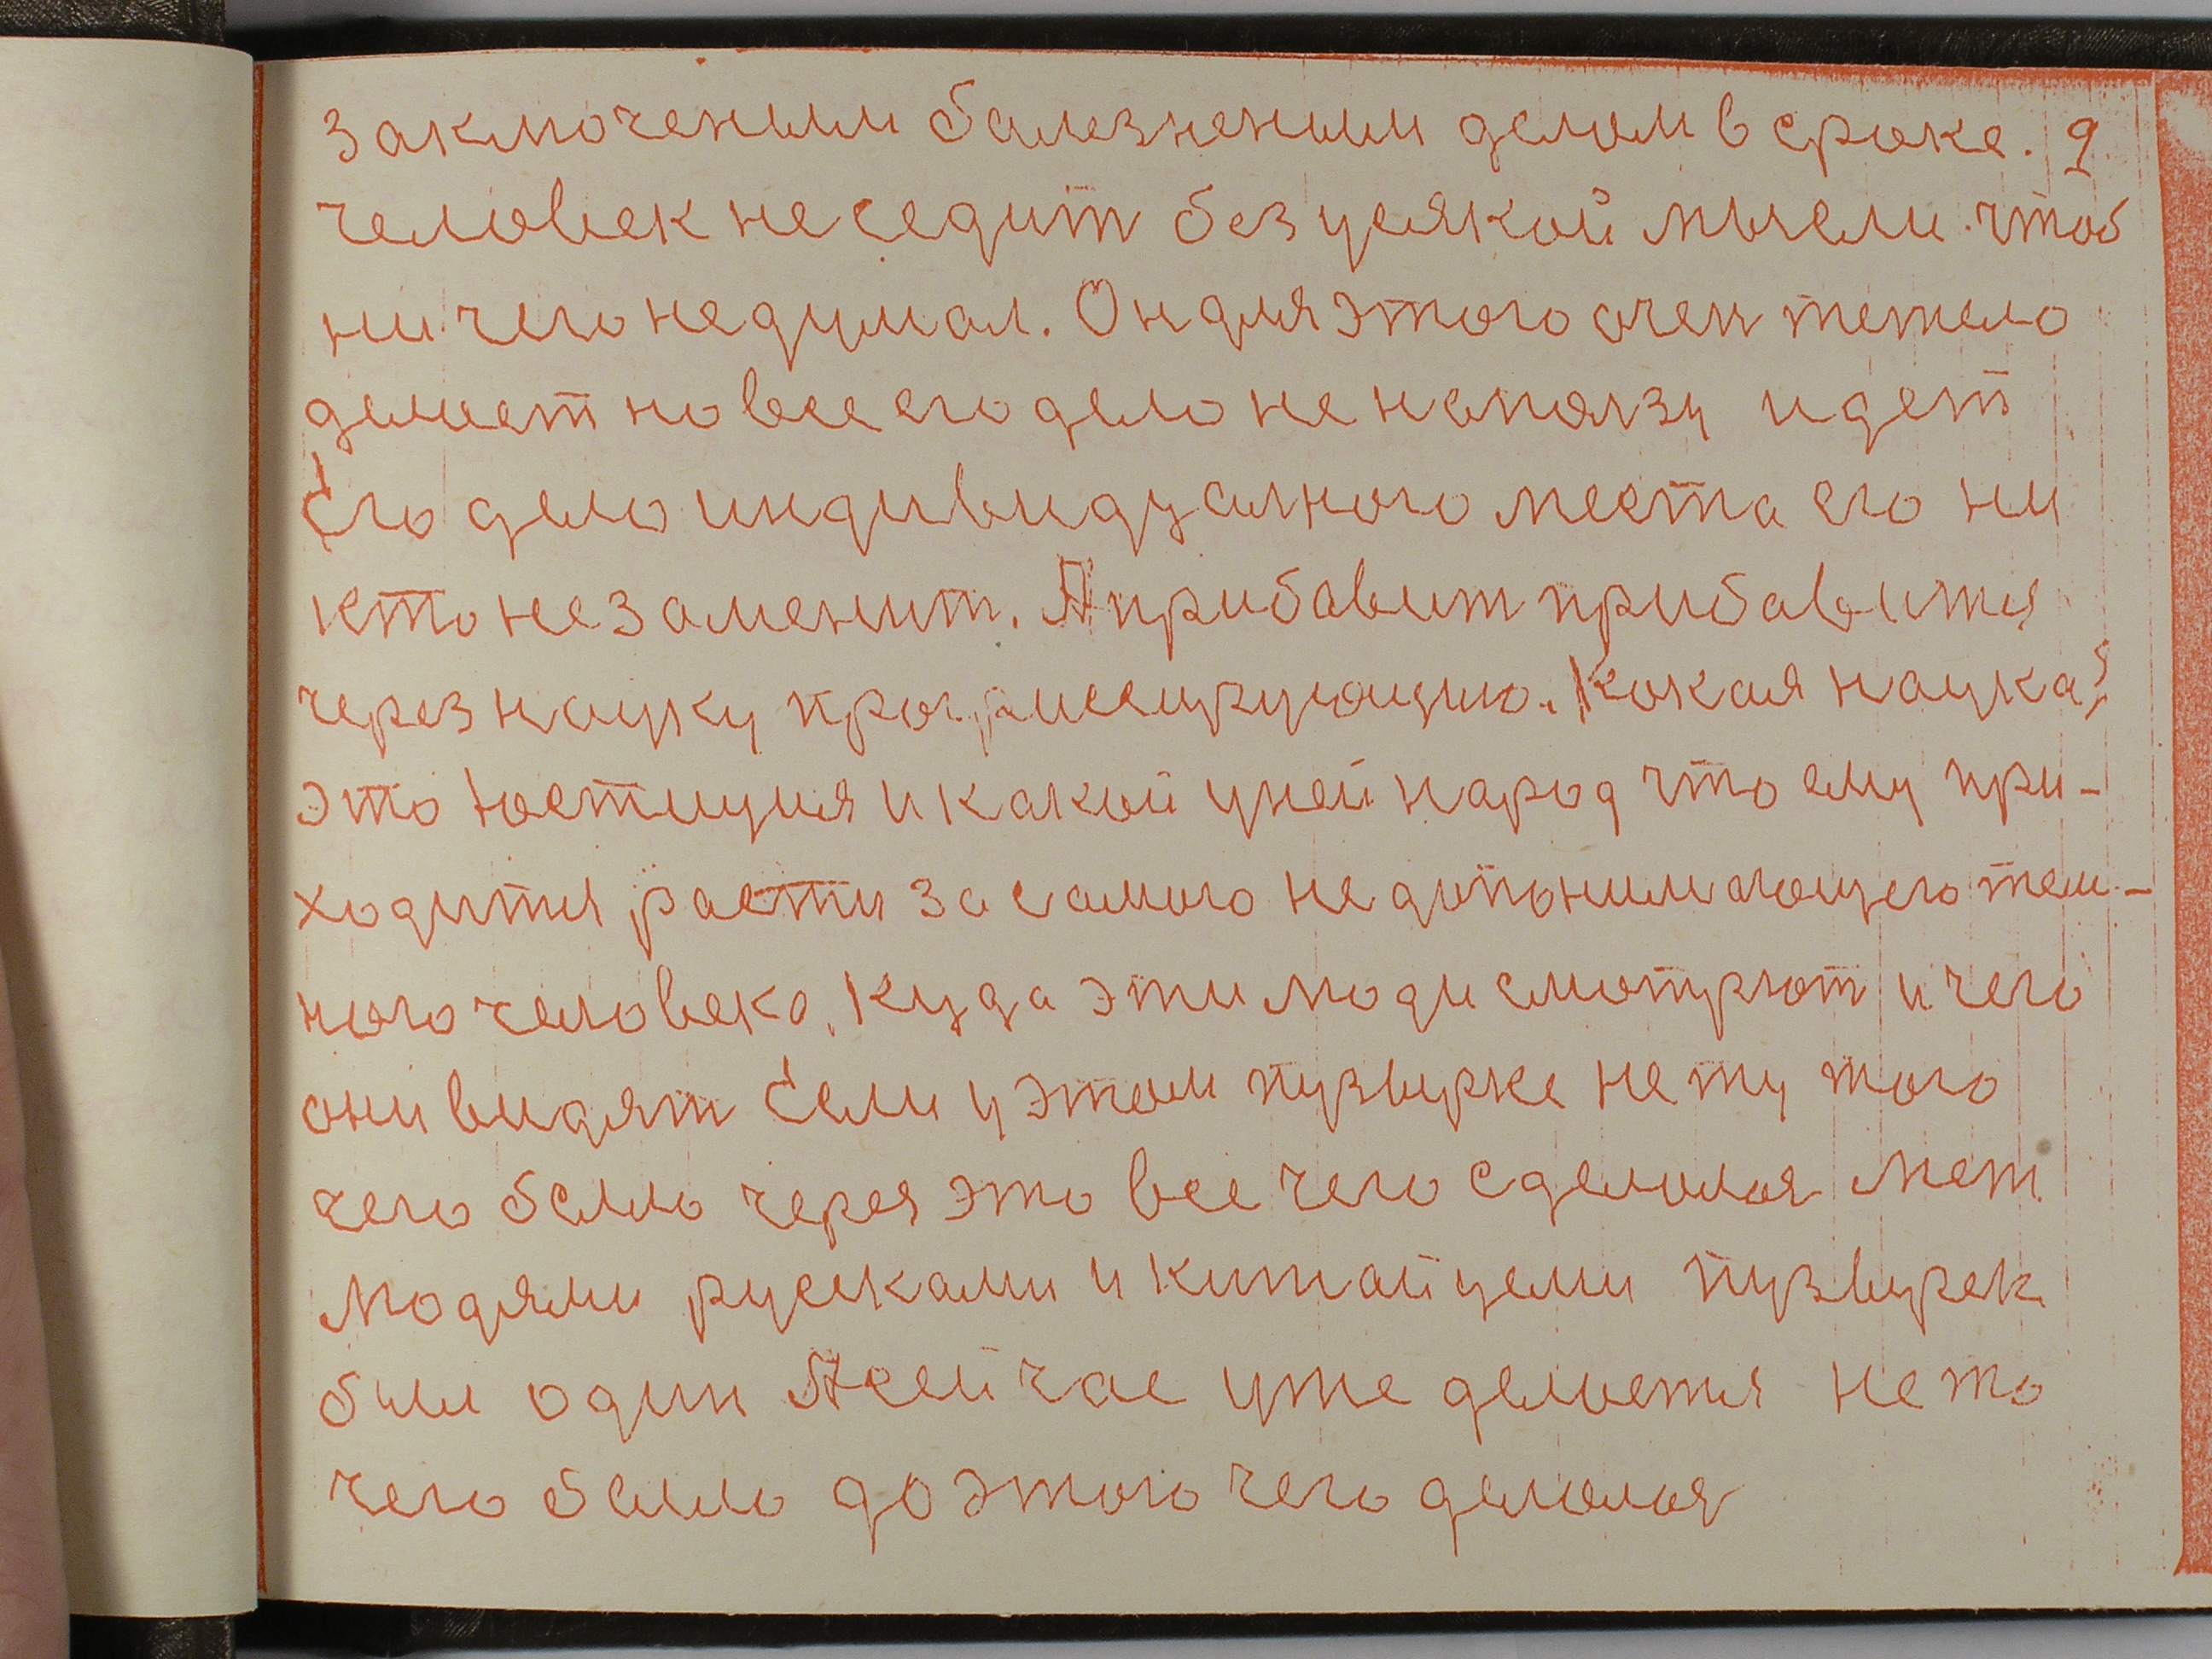 заключеным балезненым делом в сроке. 9
человек не седит без усякой мысли. чтоб
ни чего не думал. Он для этого очен тежело
делает но все его дело не на ползу идет
Его дело индивидуалного места его ни
кто не заменит. А прибавит прибавится
через науку прогрисещрующию. Какая наука?
это юстиция и какой у ней народ что ему при-
ходится расти за самого недопонимающего тем-
ного человека. Куда эти люди смотрют и чего
они видят Если у этом пузырке нету того
чего было через это все чего сделалоя Меж
людями руссками и китайцеми пузырек
был один А сейчас уже делается не то
чего было до этого чего делалоя